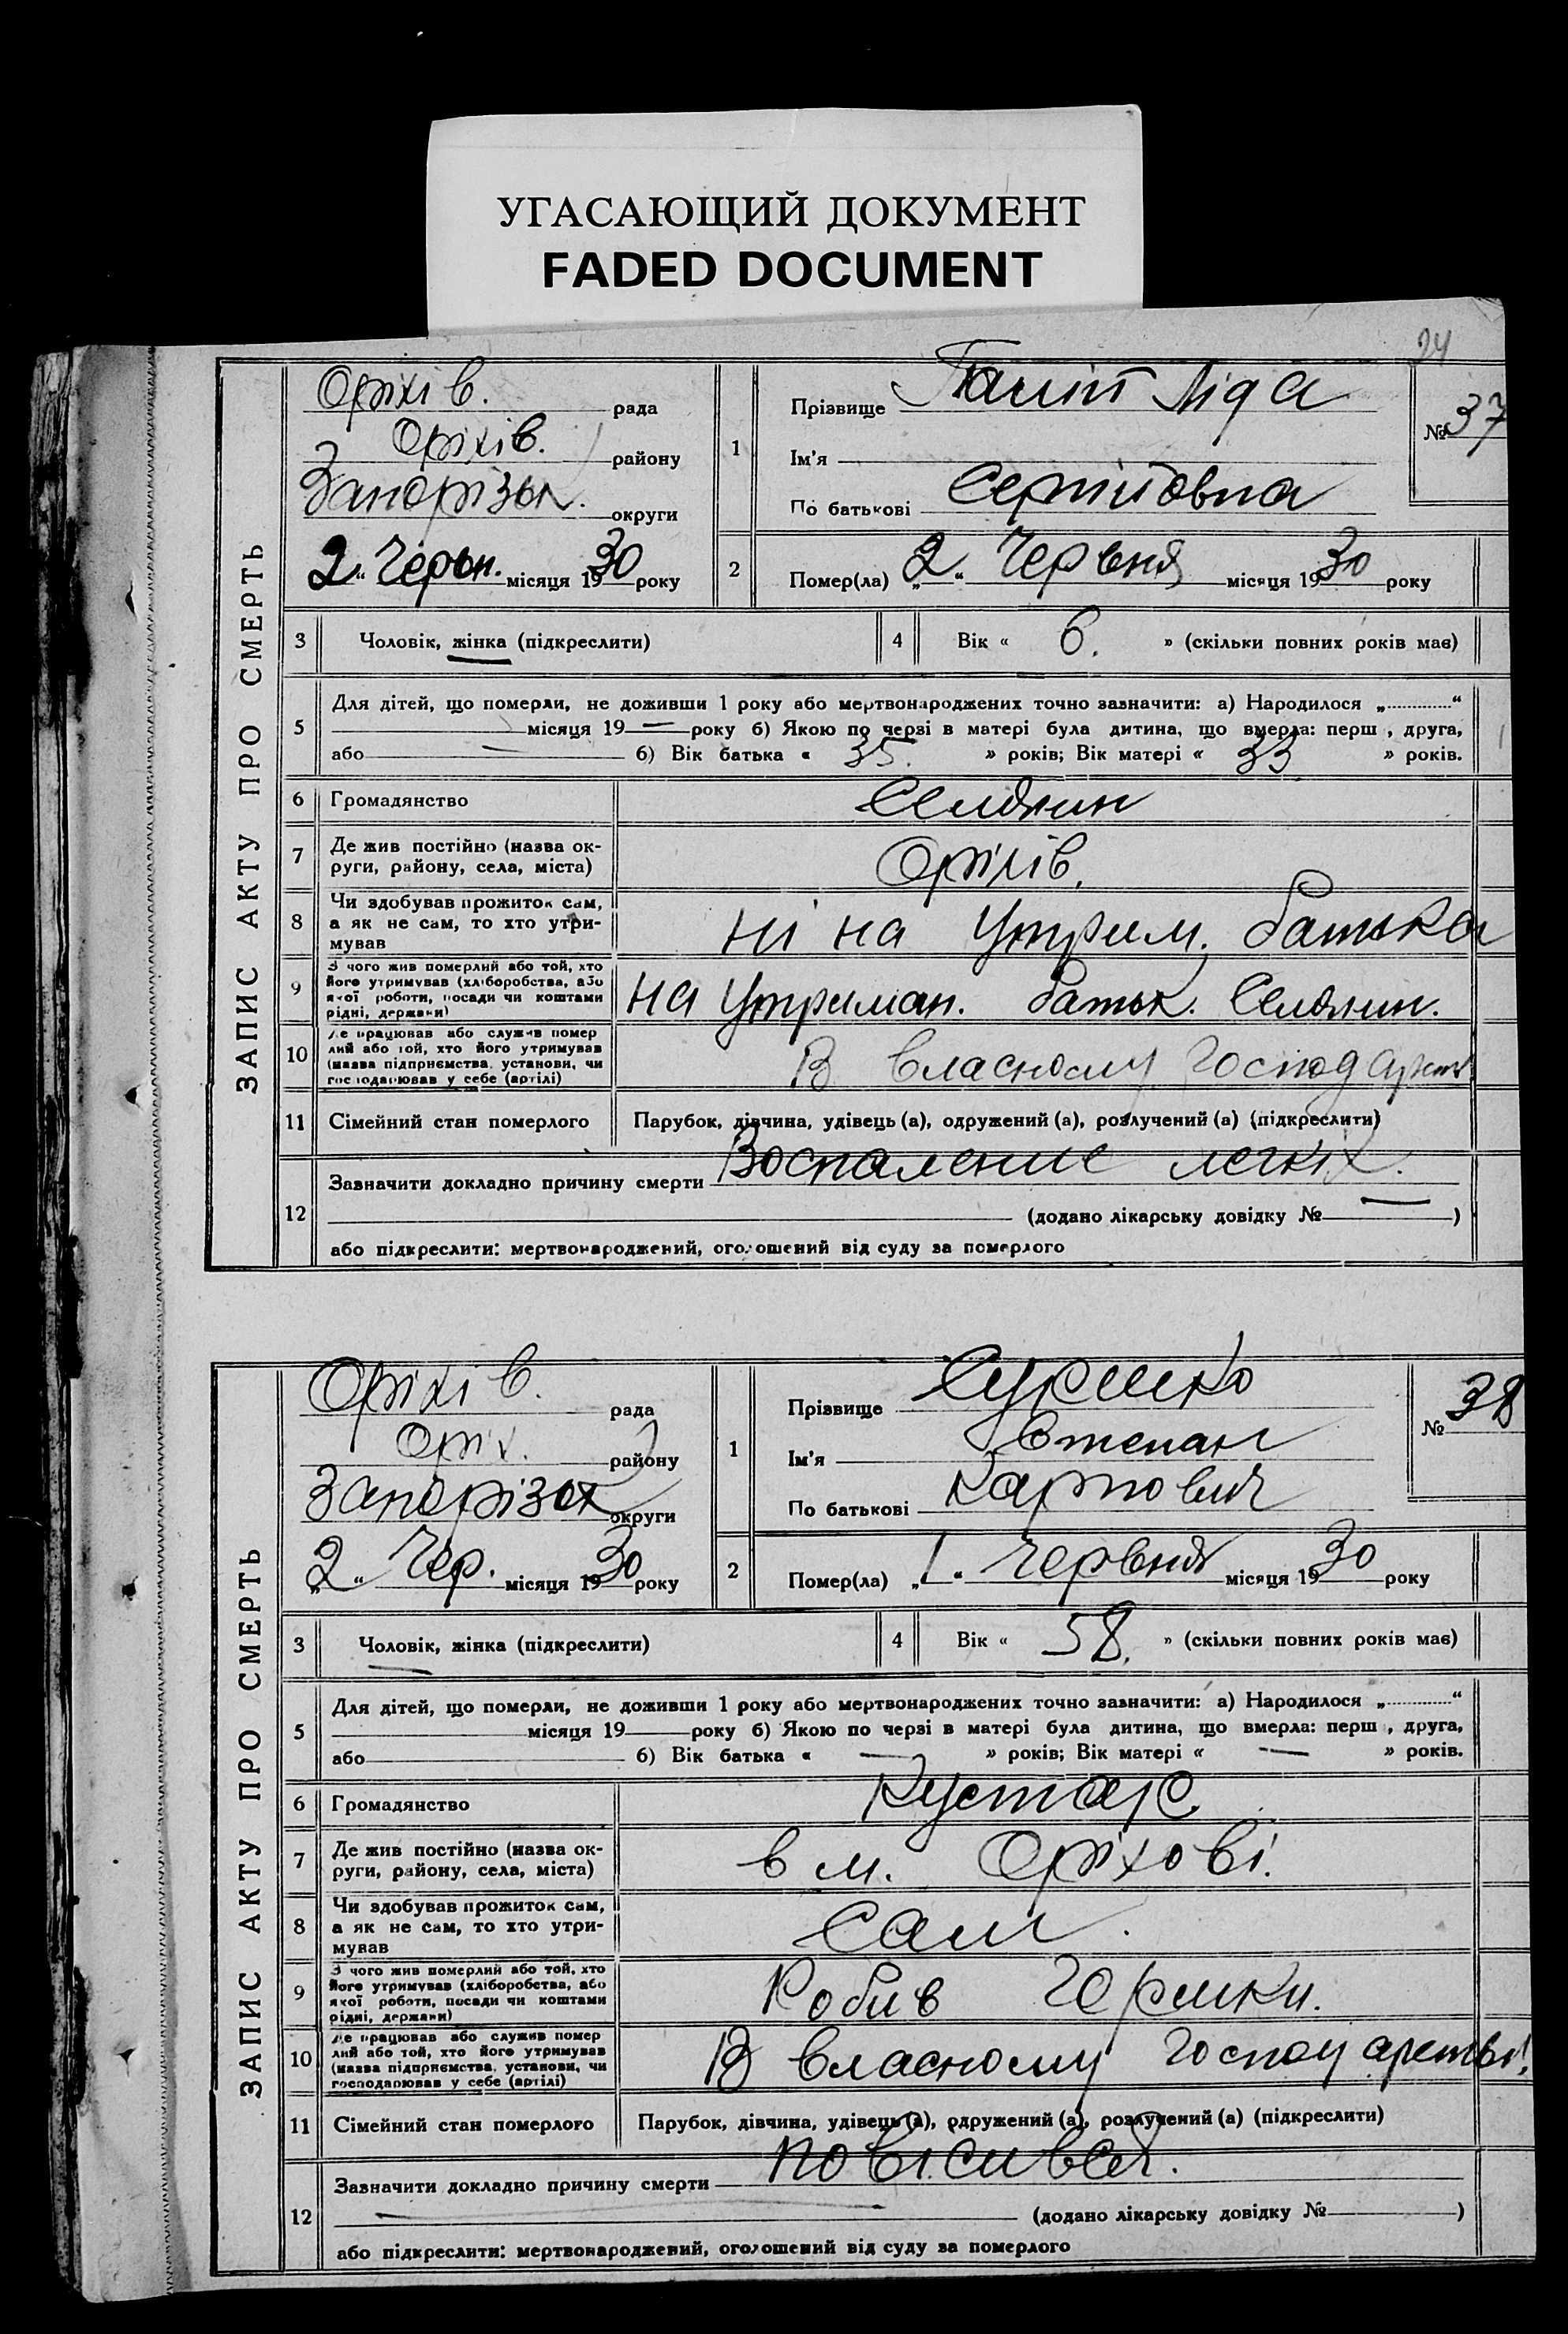 УГАСАЮЩИЙ ДОКУМЕНТ
FADED DOCUMENT
24
ЗАПИС АКТУ ПРО СМЕРТЬ
Оріхів. рада
Оріхів. району
Запорізьк. округи
2 “ Червн. місяця 1930 року
1
Прізвище Ліда
Ім'я
По батькові Сергіївна
№ 37
2
Помер(ла) „2“ Червня місяця 1930 року
3 Чоловік, жінка (підкреслити)
4 Вік « 6. » (скільки повних років має)
5
Для дітей, що померли, не доживши 1 року або мертвонароджених точно зазначити: а) Народилося „............“
місяця 19— року б) Якою по черзі в матері була дитина, що вмерла: перш , друга,
або — б) Вік батька « 35. » років; Вік матері « 33 » років.
6 Громадянство Селянин
7 Де жив постійно (назва ок-
руги, району, села, міста) Оріхів.
8 Чи здобував прожиток сам,
а як не сам, то хто утри-
мував ні на утрим. батька
9 З чого жив померлий або той, хто
його утримував (хліборобства, або
якої роботи, посади чи коштами
рідні, держави) на утриман. батьк. Селянин.
10 Де працював або служив помер
лий або той, хто його утримував
(назва підприємства, установи, чи
господарював у себе (артілі) В власному господарст
11 Сімейний стан померлого Парубок, дівчина, удівець (а), одружений (а), розлучений (а) (підкреслити)
12
Зазначити докладно причину смерти Воспаление легкіх.
(додано лікарську довідку № — )
або підкреслити: мертвонароджений, оголошений від суду за померлого
ЗАПИС АКТУ ПРО СМЕРТЬ
Оріхів. рада
Оріх. району
Запорізьк округи
„2“ Чер. місяця 1930 року
1
Прізвище
Ім'я Степан
По батькові Карпович
№ 38
2
Помер(ла) „1“ Червня місяця 1930 року
3 Чоловік, жінка (підкреслити)
4 Вік « 58. » (скільки повних років має)
5
Для дітей, що померли, не доживши 1 року або мертвонароджених точно зазначити: а) Народилося „............“
місяця 19 року б) Якою по черзі в матері була дитина, що вмерла: перш , друга,
або б) Вік батька « — » років; Вік матері « — » років.
6 Громадянство Кустар
7 Де жив постійно (назва ок-
руги, району, села, міста) в м. Оріхові.
8 Чи здобував прожиток сам,
а як не сам, то хто утри-
мував Сам.
9 З чого жив померлий або той, хто
його утримував (хліборобства, або
якої роботи, посади чи коштами
рідні, держави) Робив
10 Де працював або служив помер
лий або той, хто його утримував
(назва підприємства, установи, чи
господарював у себе (артілі) В власному
11 Сімейний стан померлого Парубок, дівчина, удівець (а), одружений (а), розлучений (а) (підкреслити)
12
Зазначити докладно причину смерти Повісився.
(додано лікарську довідку № )
або підкреслити: мертвонароджений, оголошений від суду за померлого